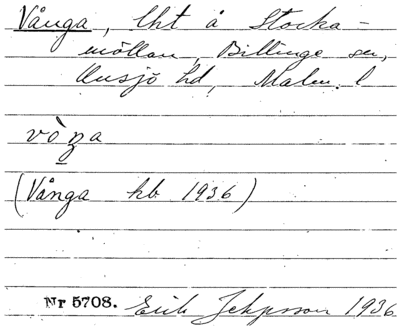 Vånga, lht å Stocka-
möllan, Billinge sn,
Onsjö hd, Malm. l
vòŋa
(Vånga kb 1936)
Nr 5708. Erik Jeppsson 1936